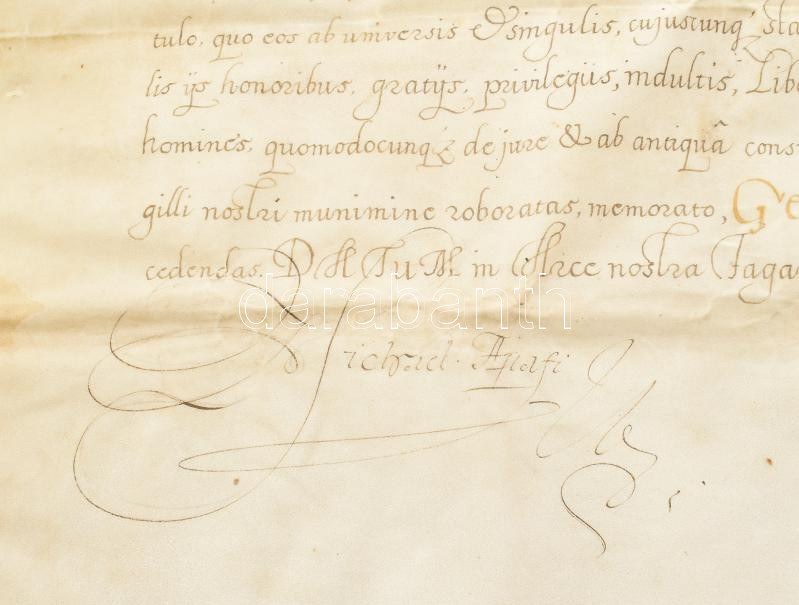 tulo, quo eos ab universis & singulis, cujuscunq; sta
lis ijs honoribus, gratijs, privilegijs, indultis, Libe
homines, quomodocunq; de jure & ab antiquâ cons
gilli nostri munimine roboratas, memorato, GE
cedendas. DATUM in Arce nostra Fagar
darabanth
Michael Apafi